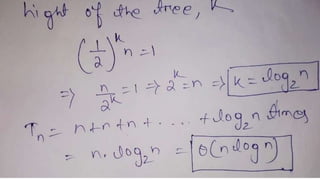 hight of the tree, k
(1/2)^k n = 1
⇒ n/2^k = 1 ⇒ 2^k = n ⇒ k = log₂n
Tₙ = n+n+n+.....+log₂n times
= n. log₂n = θ(n log n)